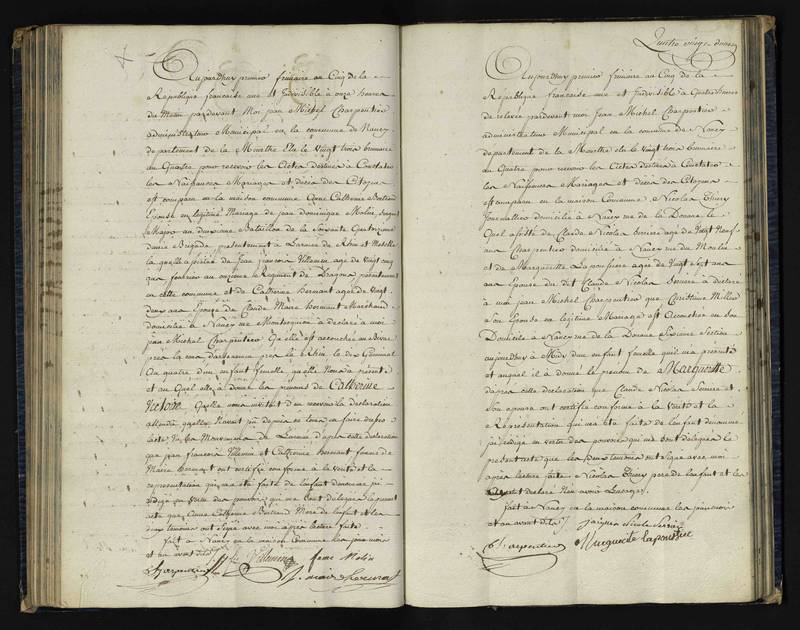 Aujourdhuy premier frimaire an Cinq de la
République française une et Indivisible à onze heures
du Matin pardevant Moi jean Michel Charpentier
administrateur Municipal en la commune de Nancy
departement de la Meurthe Elu le vingt trois brumaire
an Quatre pour recevoir les Actes destinés à Constater
les Naissances Mariages et décès des Citoyens
est comparu en la maison commune Anne Catherine Bertrand
Epouse en legitime Mariage de jean dominique Molin Sergent
Major au deuxieme Bataillon de la soixante Quatrieme
demie Brigade presentement à l'armée de Rhin et Moselle
la quelle assistée de jean françois Villemin agé de vingt cinq
ans au onzieme Regiment de Dragons presentement
en cette commune et de Catherine Hormant agée de vingt
deux ans Epouse de Claude Marie hormant Marechand
domicilié à Nancy rue Montesquieu à declaré à moi
jean Michel Charpentier Qu'elle est accouchée au Bivac
près la le dix Germinal
an quatre d'un enfant femelle, qu'elle Nous a présenté
et au Quel elle a donné les prenoms de Catherine
Victoire
attendu quelle Navait pu depuis ce tems en faire dresser
lacte Vu les Mouvemens de Larmée, d'après cette declaration
que jean francois Villemin et Catherine hormant femme de
Marie hormant ont certifié conforme à la verité et la
representation qui ma été faite de lenfant denommé jai
rédigé en vertu des pouvoirs qui me sont délégués le present
acte que Anne Catherine Bertrand Mere de lenfant et les
deux temoins ont Signé avec moi après lecture faite
fait à Nancy en la maison Commune les jour mois
et an avant dits
Charpentier Villemin feme Molin
Quatre vingt douze
Aujourdhuy premier frimaire an Cinq de la
République française une et Indivisible à Quatre heures
de relevé pardevant moi Jean Michel Charpentier
administrateur Municipal en la commune de Nancy
departement de la Meurthe elu le vingt trois brumaire
an Quatre pour recevoir les Actes destinés à Constater
les Naissances Mariages et décès des Citoyens
est comparu en la maison Commune Nicolas Thiery
Journallier domicilié à Nancy rue de la Douane le
Quel assisté de Claude Nicolas agé de Vingt Neuf
ans Charpentier domicilié à Nancy rue du Moulin
et de Marguerite Lapoussiere agée de Vingt Sept ans
Epouse du dit Claude Nicolas à declaré
à moi jean Michel Charpentier que Christine Miller
Son Epouse en legitime Mariage est Accouchée en Son
Domicile à Nancy rue de la Douane Section
aujourdhuy à Midy d'un enfant femelle quil ma présenté
et auquel il a donné le prenom de Marguerite
dapres cette declaration que Claude Nicolas et
Son epouse ont certifié conforme à la verité et la
Représentation qui ma été faite de lenfant denommé
jai rédigé en vertu des pouvoirs qui me sont délégués le
présent acte que les deux temoins ont Signé avec moi
après lecture faite Nicolas Thiery pere de lenfant et les
ayant declaré Nen avoir Lusage
fait à Nancy en la maison commune les jour mois
et an avant dits
Charpentier Marguerite lapoussiere